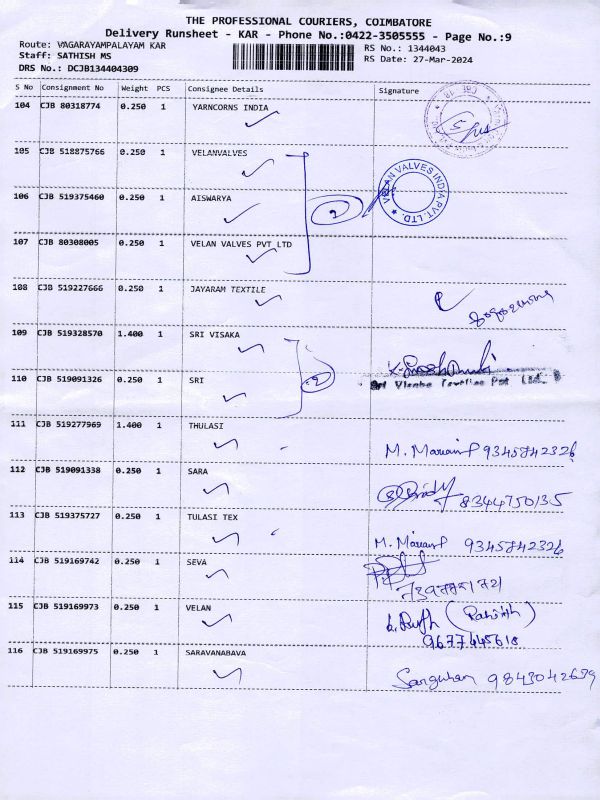 THE PROFESSIONAL COURIERS, COIMBATORE
Delivery Runsheet - KAR - Phone No.:0422-3505555 - Page No.:9
Route: VAGARAYAMPALAYAM KAR RS No.: 1344043
Staff: SATHISH MS RS Date: 27-Mar-2024
DRS No.: DCJB134404309
S No Consignment No Weight PCS Consignee Details Signature
104 CJB 80318774 0.250 1 YARNCORNS INDIA
105 CJB 518875766 0.250 1 VELANVALVES
VELAN VALVES INDIA PVT. LTD.
106 CJB 519375460 0.250 1 AISWARYA
2
107 CJB 80308005 0.250 1 VELAN VALVES PVT LTD
108 CJB 519227666 0.250 1 JAYARAM TEXTILE
109 CJB 519328570 1.400 1 SRI VISAKA
2
110 CJB 519091326 0.250 1 SRI
Sri Visaka Textiles Pvt Ltd.
111 CJB 519277969 1.400 1 THULASI
M. 9345842326
112 CJB 519091338 0.250 1 SARA
8344750135
113 CJB 519375727 0.250 1 TULASI TEX
M. 9345842326
114 CJB 519169742 0.250 1 SEVA
115 CJB 519169973 0.250 1 VELAN
9677445618
116 CJB 519169975 0.250 1 SARAVANABAVA
9843042639